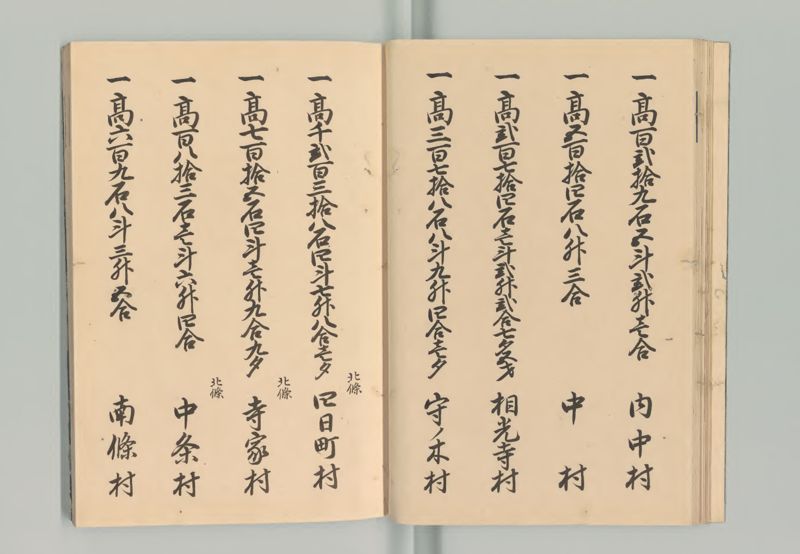 一高百弐拾九石五斗弐升壱合 内中村
一高五百拾四石八升三合 中村
一高弐百七拾四石壱斗弐升弐合七夕五才 相光寺村
一高三百七拾八石八斗九升四合壱夕 守ノ木村
一高千弐百三拾八石四斗七升八合壱夕 北條 四日町村
一高七百拾五石四斗壱升九合九夕 北條 寺家村
一高百八拾三石壱斗六升四合 北條 中条村
一高六百九石八斗三升五合 南條村